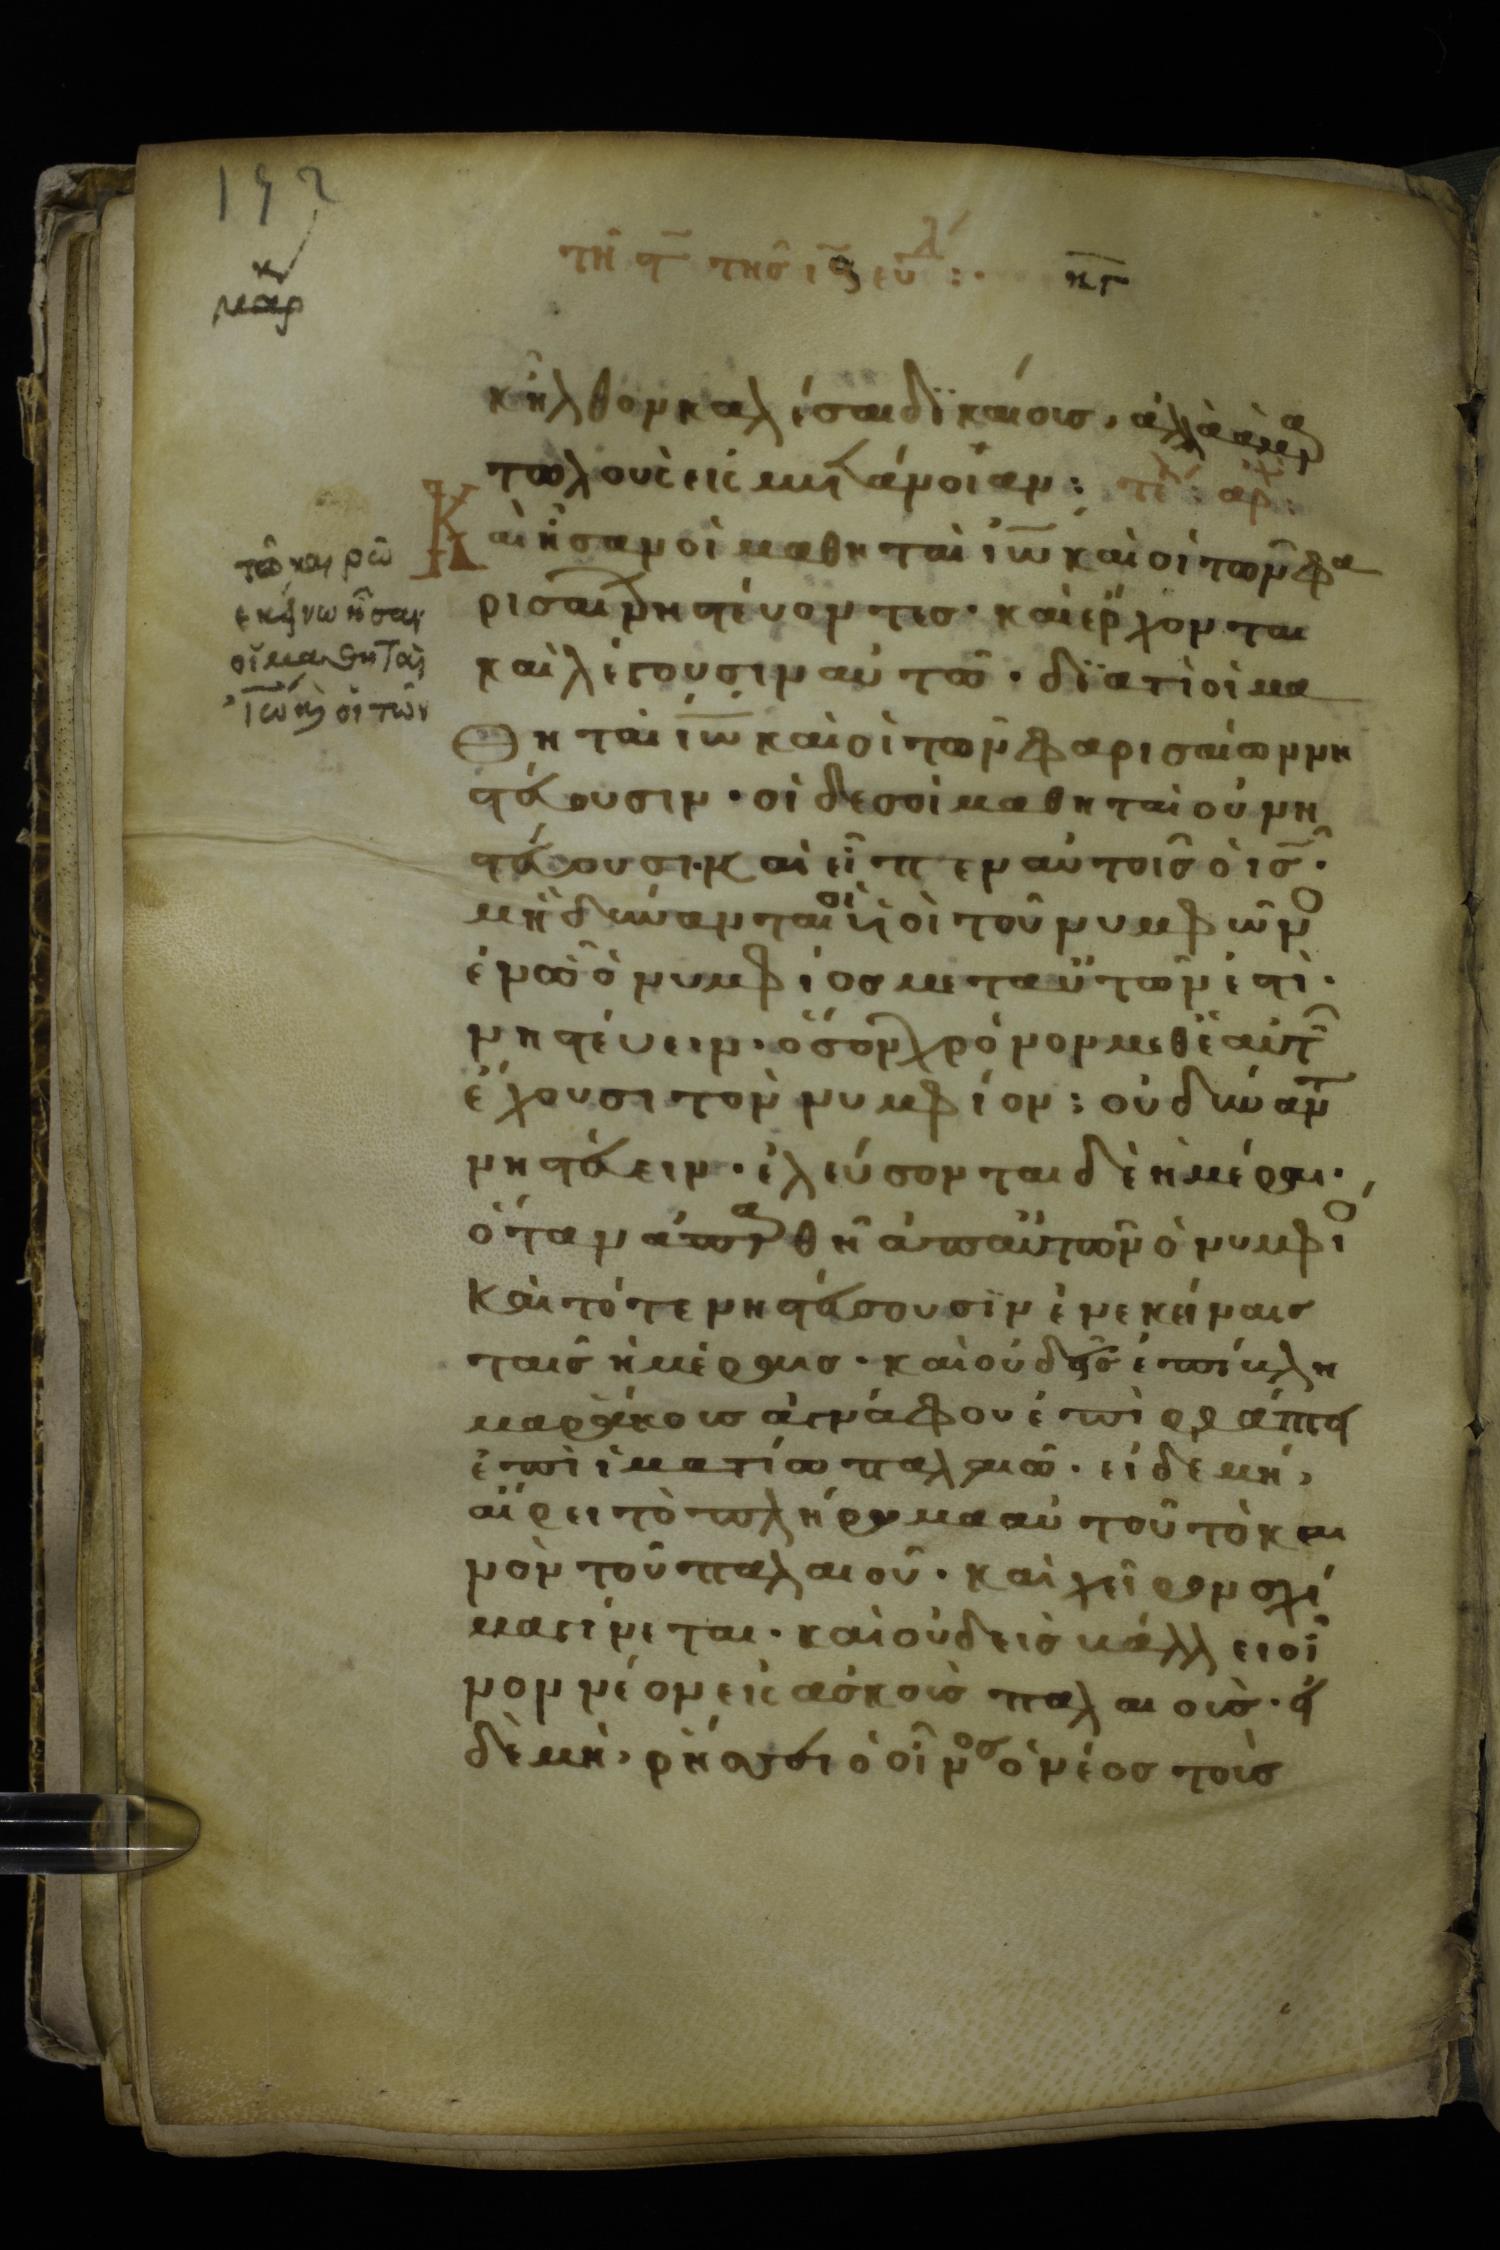 192
μαρ
τῆ ϛ̄ τῆς ις ευλ :· κγ
κ ἦλθον καλέσαι δϊκαίους, ἀλλὰ ἁμαρ
τωλοὺς εἰς μετάνοιαν : τε : αρχ :
Καὶ ἦσαν οἱ μαθηταὶ ἰω̅ καὶ οἱ τῶν φα
ρισαίων νηστεύοντες · καὶ ἔρχονται
καὶ λέγουσιν αὐτῶ · δϊατὶ οἱ μα
θηταὶ ἰω̅ καὶ οἱ τῶν φαρισαίων νη
στεύουσιν · οἱ δε σοὶ μαθηταὶ οὐ νη
στεύουσι · Καὶ εἶπεν αὐτοῖς ὁ ις̅ ·
μὴ δύνανται οἱ υἱοὶ τοῦ νυμφῶνο
ἐν ὧ ὁ νυμφίος μετ αὐτῶν ἐστὶ ·
νηστεύειν · ὅσον χρόνον μεθ ἑαυτ
ἔχουσι τὸν νυμφίον : οὐ δύναντ
νηστεύειν · ἐλεύσονται δὲ ἡμέραι ·
ὅταν ἀπαρθῆ ἀπ αὐτῶν ὁ νυμφίο
Καὶ τότε νηστεύσουσϊν ἐν ἐκείναις
ταῖς ἡμέραις · καὶ οὐδεὶς ἐπίβλη
μα ῥάκους ἀγνάφου ἐπιρράπτει
ἐπὶ ἱματίω παλαιῶ · εἰ δε μή,
αἴρει τὸ πλήρωμα αὐτοῦ τὸ και
νὸν τοῦ παλαιοῦ · καὶ χεῖρον σχί
σμα γίνεται · καὶ οὐδεὶς βάλλει οἶ
νον νέον εἰς ἀσκοὺς παλαιοὺς · εἰ
δὲ μὴ, ῥήσσει ὁ οἶνος ὁ νέος τοὺς
τῶ καιρῶ
εκείνω ἦσαν
οἱ μαθηταὶ
Ἰω κ οἱ τῶν